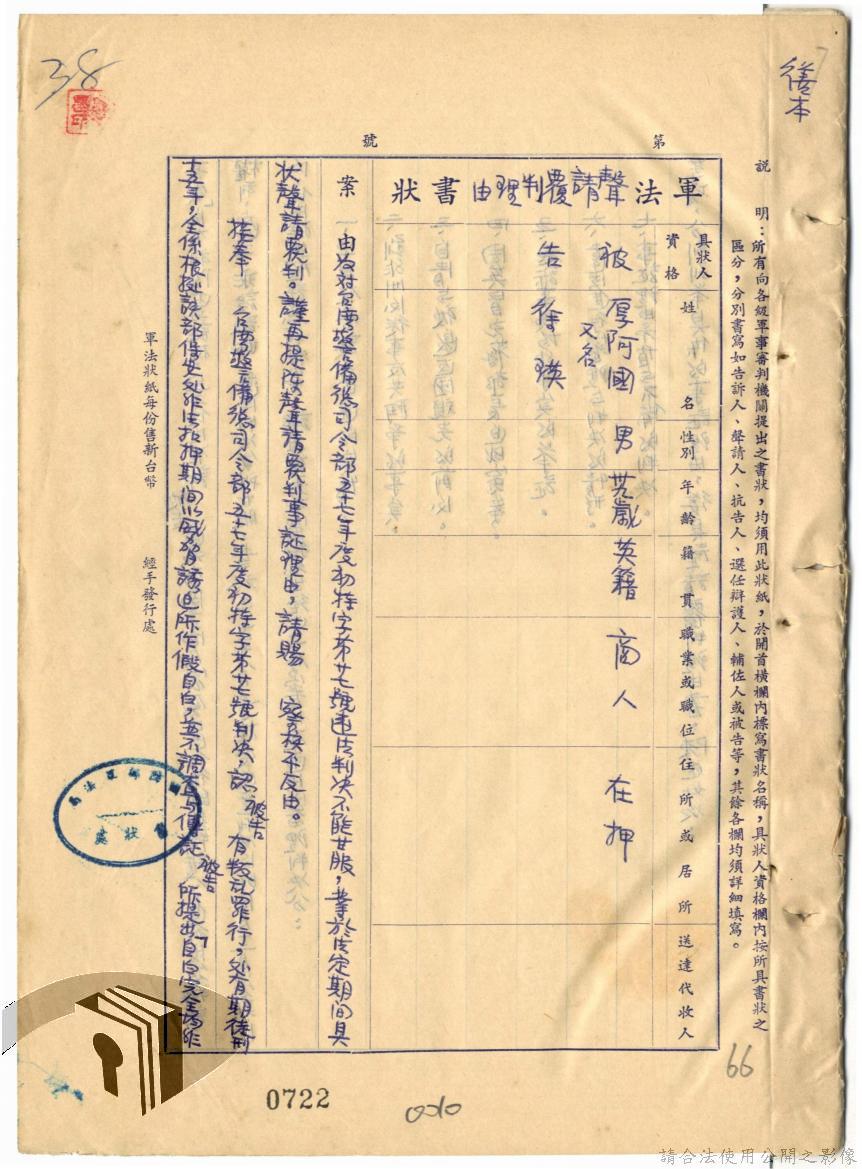 繕本
38
第 號
說 明：所有向各級軍事審判機關提出之書狀，均須用此狀紙，於開首橫欄內標寫書狀名稱，具狀人資格欄內按所具書狀之
區分，分別書寫如告訴人、聲請人、抗告人、選任辯護人、輔佐人或被告等，其餘各欄均須詳細填寫。
軍法聲請覆判理由書狀
具狀人資格
姓名
性別
年齡
籍貫
職業或職位
住所或居所
送達代收人
被 厚阿國 男 英籍 商人 在押
又名
告 徐瑛
案 一由為對台灣警備總司令部五十七年度初特字第廿七號違法判決不能甘服，業於法定期間具
狀聲請覆判。謹再提陳聲請覆判事証理由，請賜 察核不反由。
接奉 台灣警備總司令部五十七年度初特字第廿七號判決，認被告有叛乱罪行，处有期徒刑
十五年，全係根據該部保安处非法扣押期間以威脅誘迫所作假自白，並不調查与傳証被告所提出「自白完全均非
軍法狀紙每份售新台幣
經手發行處
66
0722
請合法使用公開之影像